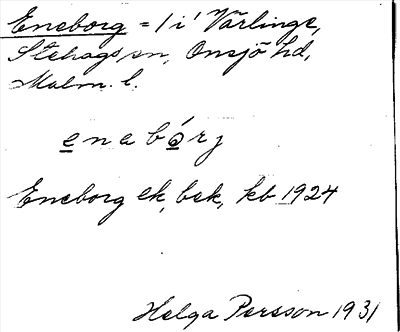 Eneborg = 1 i Värlinge,
Stehags sn, Onsjö hd,
Malm. l.
enabórj
Eneborg ek, bek, kb 1924
Helga Persson 1931